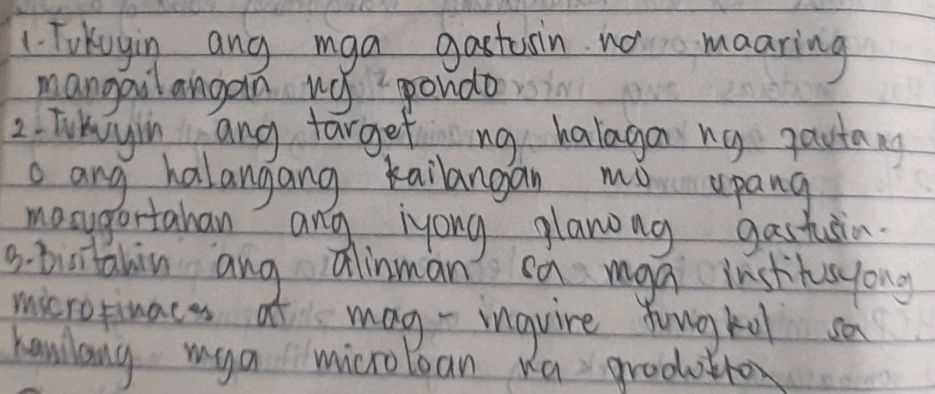 1. Tukuyin ang mga gastusin na maaring
mangailangan ng pondo
2. Tukuyin ang target ng halaga ng gastang
o ang halangang kailangan mo upang
masugortahan ang iyong planong gastusin.
3. Bisitahin ang alinman sa mga institusyong
microfinaces at mag-inquire tungkol sa
kanilang mga microloan na produkto